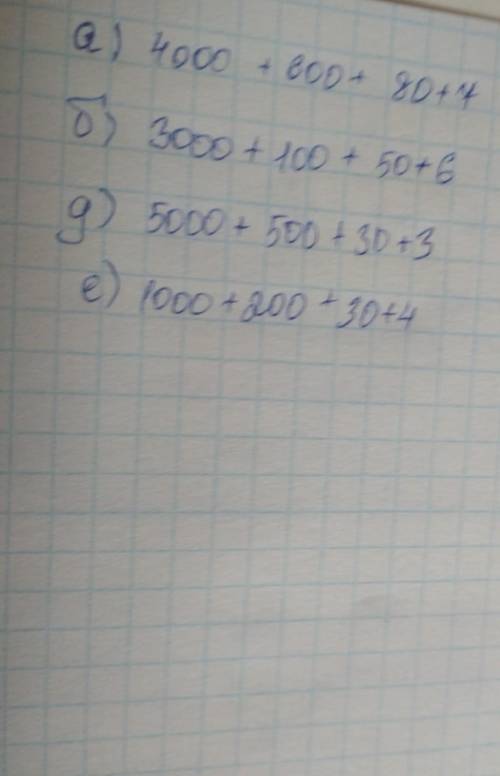 а) 4000 + 600 + 80 + 7
б) 3000 + 100 + 50 + 6
д) 5000 + 500 + 30 + 3
е) 1000 + 200 + 30 + 4